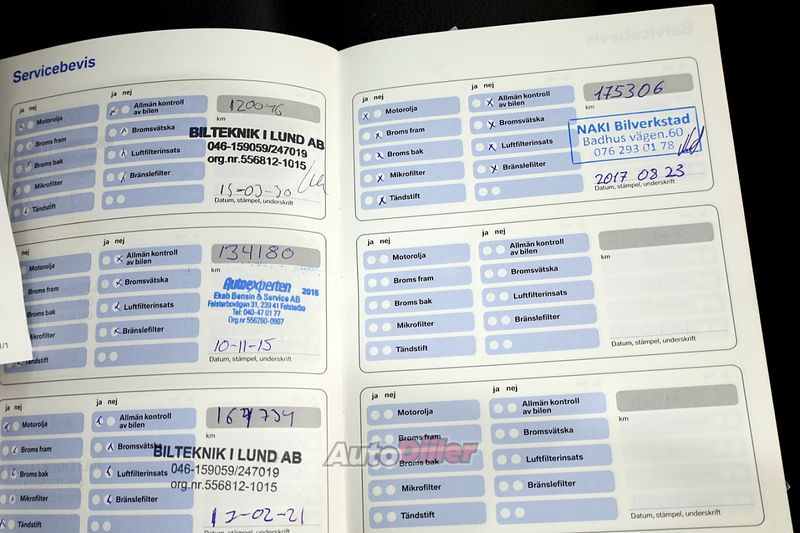 Servicebevis
ja nej
Motorolja
Broms fram
Broms bak
Mikrofilter
Tändstift
Allmän kontroll
av bilen
Bromsvätska
Luftfilterinsats
Bränslefilter
120046
km
BILTEKNIK I LUND AB
046-159059/247019
org.nr.556812-1015
15-03-30
Datum, stämpel, underskrift
ja nej
Motorolja
Broms fram
Broms bak
Mikrofilter
Tändstift
Allmän kontroll
av bilen
Bromsvätska
Luftfilterinsats
Bränslefilter
134180
km
Autoexperten 2016
Ekeb Bensin & Service AB
Falsterbovägen 31, 239 41 Falsterbo
Tel: 040-47 01 77
Org.nr 556260-0907
10-11-15
Datum, stämpel, underskrift
1/1
ja nej
Motorolja
Broms fram
Broms bak
Mikrofilter
Tändstift
Allmän kontroll
av bilen
Bromsvätska
Luftfilterinsats
Bränslefilter
164734
km
BILTEKNIK I LUND AB
046-159059/247019
org.nr.556812-1015
17-02-21
Datum, stämpel, underskrift
ja nej
Motorolja
Broms fram
Broms bak
Mikrofilter
Tändstift
Allmän kontroll
av bilen
Bromsvätska
Luftfilterinsats
Bränslefilter
175306
km
NAKI Bilverkstad
Badhus vägen.60
076 293 01 78
2017 08 23
Datum, stämpel, underskrift
ja nej
Motorolja
Broms fram
Broms bak
Mikrofilter
Tändstift
Allmän kontroll
av bilen
Bromsvätska
Luftfilterinsats
Bränslefilter
km
Datum, stämpel, underskrift
ja nej
Motorolja
Broms fram
Broms bak
Mikrofilter
Tändstift
Allmän kontroll
av bilen
Bromsvätska
Luftfilterinsats
Bränslefilter
km
Datum, stämpel, underskrift
AutoDiller